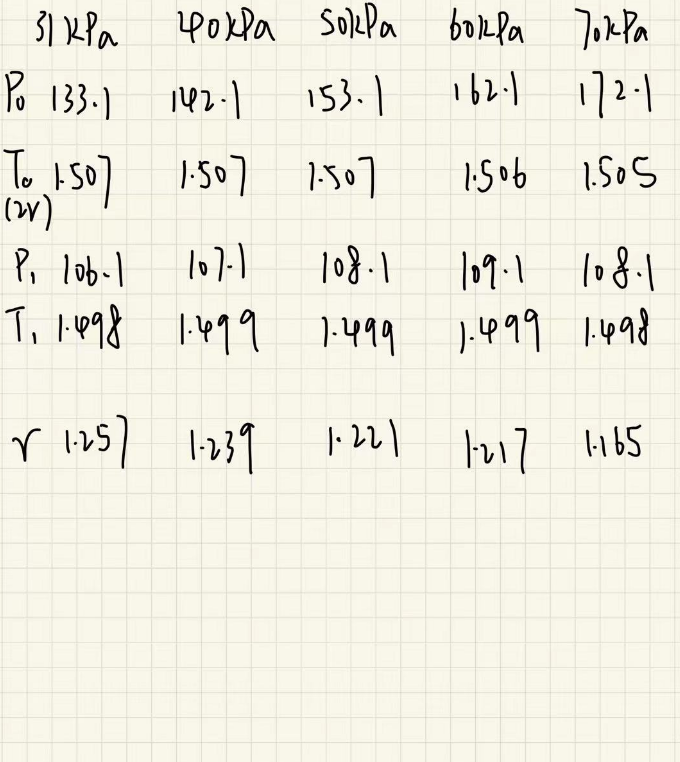 31 kPa 40 kPa 50 kPa 60 kPa 70 kPa
P₀ 133.1 142.1 153.1 162.1 172.1
T₀ 1.507 1.507 1.507 1.506 1.505
(2V)
P₁ 106.1 107.1 108.1 109.1 108.1
T₁ 1.498 1.499 1.499 1.499 1.498
r 1.257 1.239 1.221 1.217 1.165